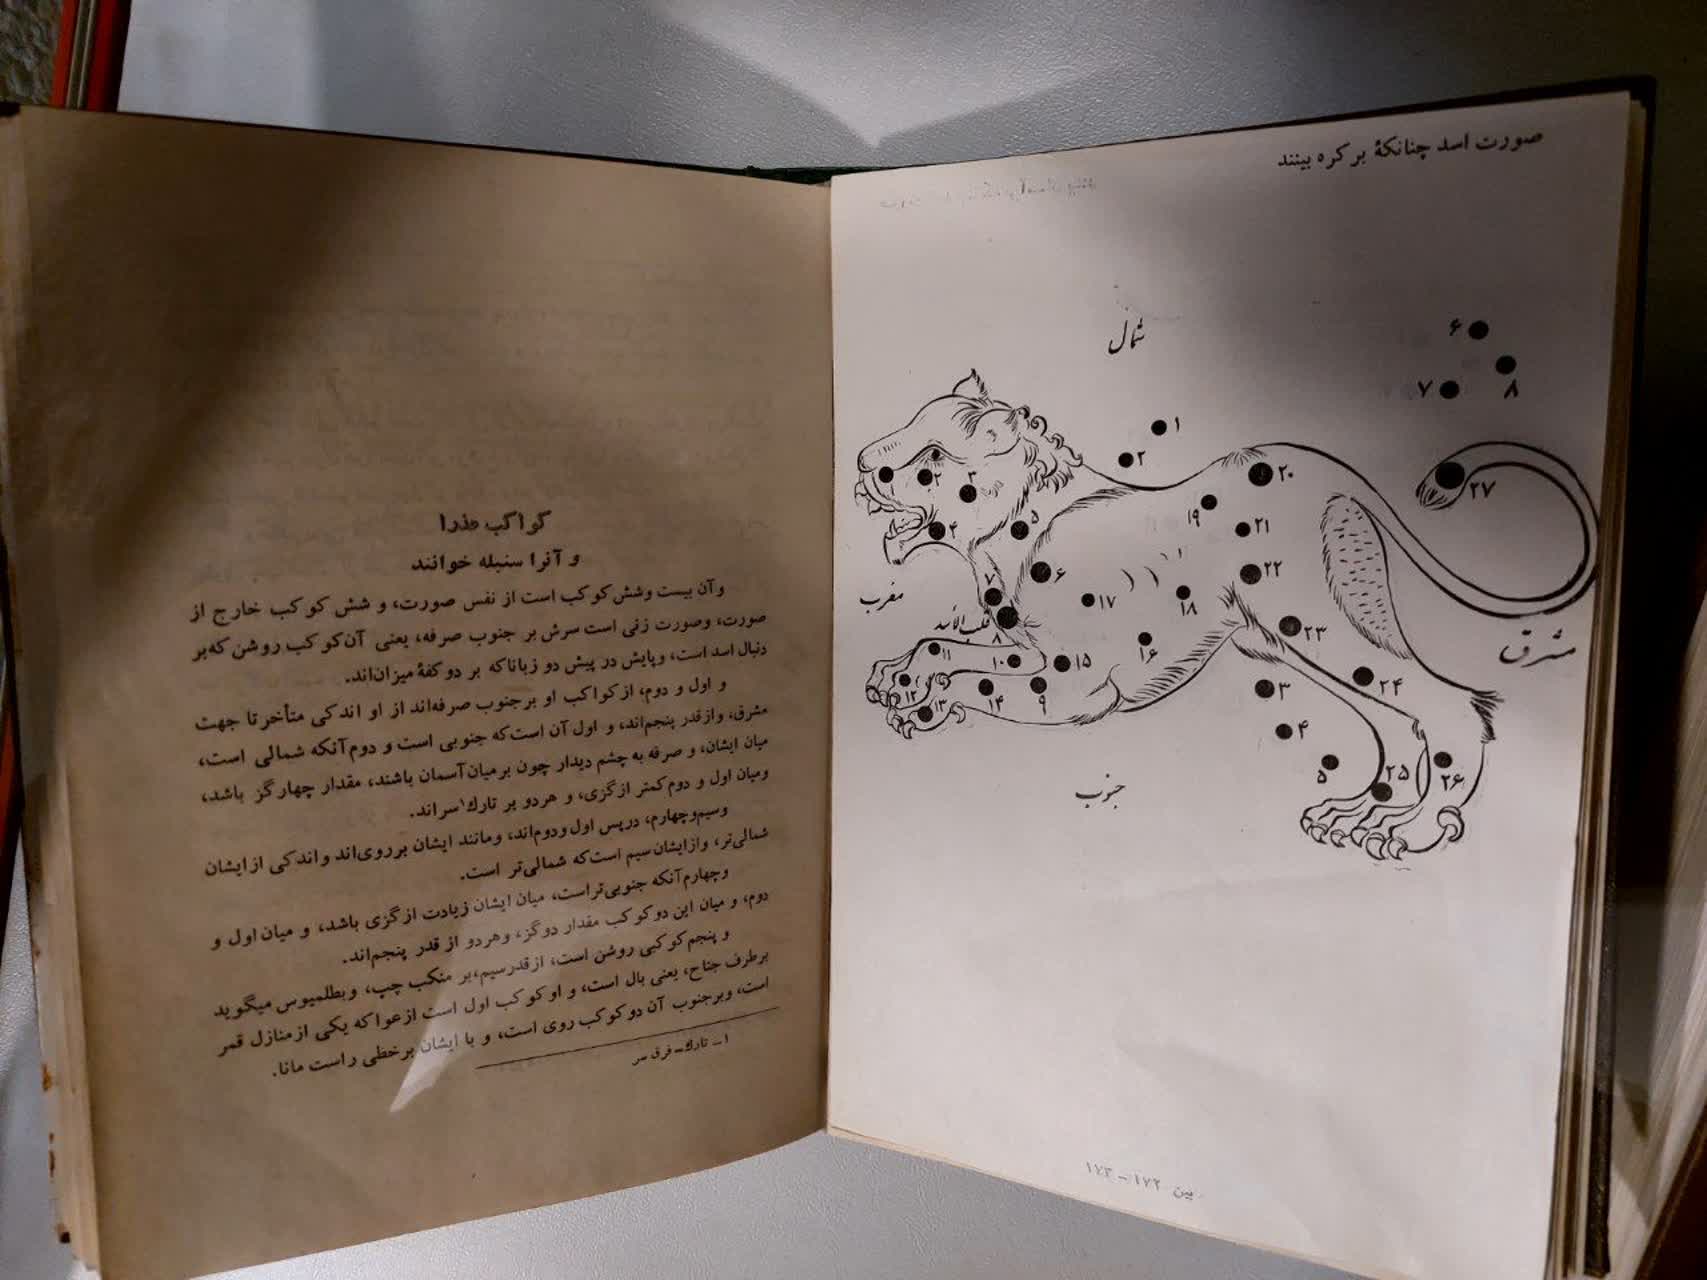 صورت اسد چنانکهٔ بر کره بینند
شمال
۶
۸
۷
۱
۲
۲۰
۲۷
۱
۲
۳
۱۹
۴
۵
۲۱
۲۲
۶
۷
۱۷
۱۸
مغرب
قلب الاسد
۸
۲۳
مشرق
۱۱
۱۰
۱۵
۱۶
۱۲
۱۴
۹
۳
۲۴
۱۳
۴
۵
۲۵
۲۶
جنوب
بین ۱۷۲ – ۱۷۳
کواکب عذرا
و آنرا سنبله خوانند
وآن بیست وشش کوکب است از نفس صورت، و شش کوکب خارج از
صورت، وصورت زنی است سرش بر جنوب صرفه، یعنی آن کوکب روشن که بر
دنبال اسد است، وپایش در پیش دو زباناکه بر دو کفهٔ میزان‌اند.
و اول و دوم، از کواکب او برجنوب صرفه‌اند از او اندکی متأخر تا جهت
مشرق، واز قدر پنجم‌اند، و اول آن است که جنوبی است و دوم آنکه شمالی است،
میان ایشان، و صرفه به چشم دیدار چون بر میان آسمان باشند، مقدار چهار گز باشد،
ومیان اول و دوم کمتر از گزی، و هردو بر تارک۱ سراند.
وسیم وچهارم، درپس اول ودوم‌اند، ومانند ایشان بر روی‌اند واندکی ازایشان
شمالی‌تر، وازایشان سیم است که شمالی‌تر است.
وچهارم آنکه جنوبی‌تر است، میان ایشان زیادت از گزی باشد، و میان اول و
دوم، و میان این دوکوکب مقدار دوگز، وهردو از قدر پنجم‌اند.
و پنجم کوکبی روشن است، از قدر سیم، بر منکب چپ، وبطلمیوس میگوید
برطرف جناح، یعنی بال است، و او کوکب اول است ازعوا که یکی از منازل قمر
است، وبرجنوب آن دوکوکب روی است، و با ایشان بر خطی راست مانا.
۱– تارک– فرق سر